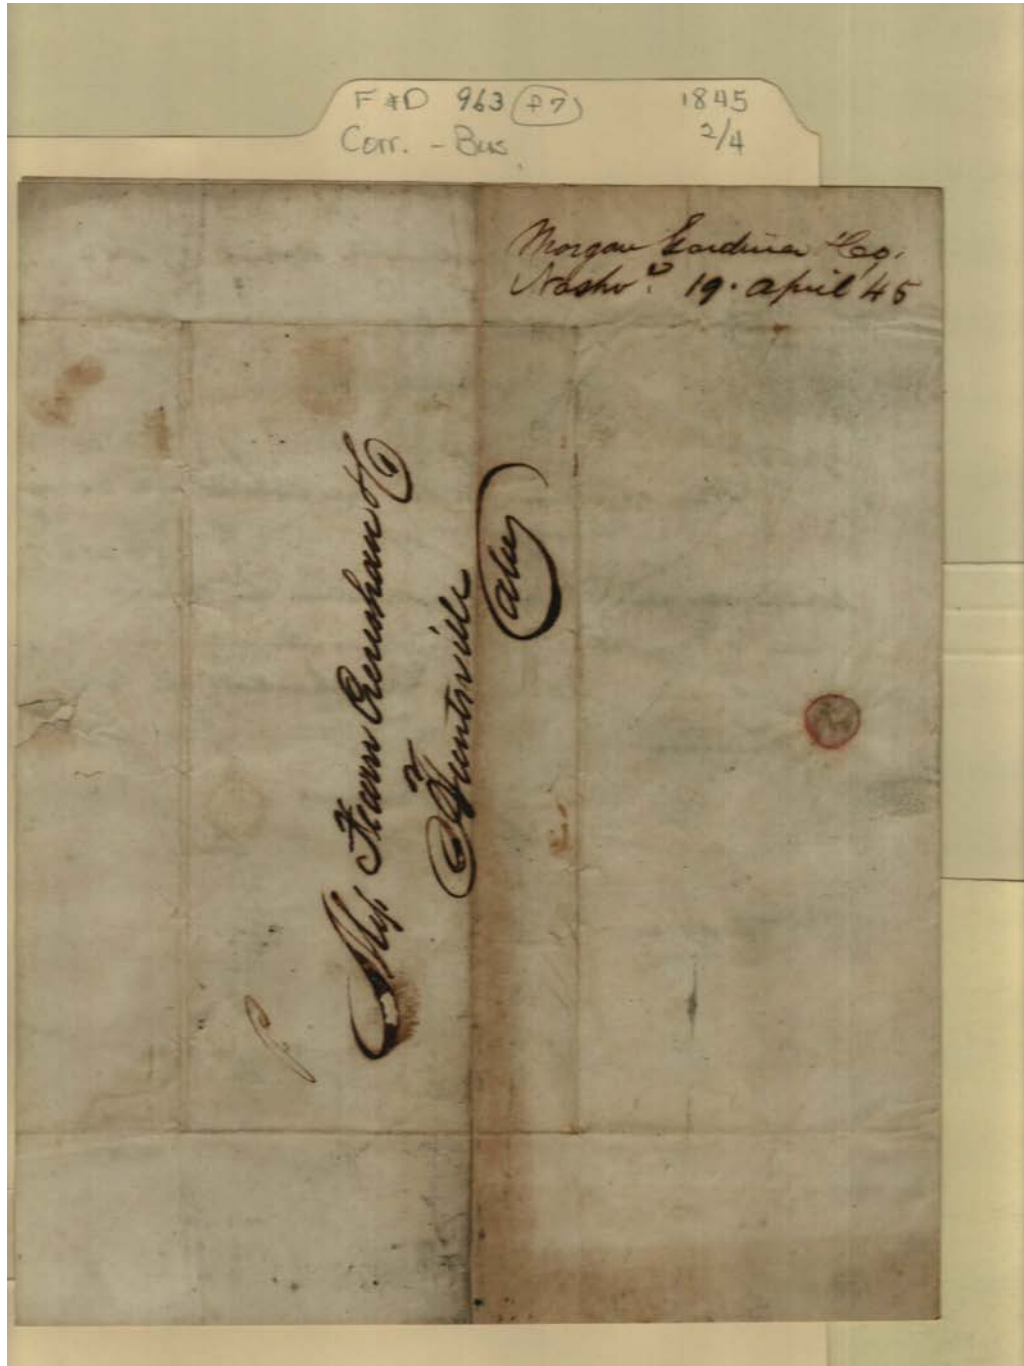 F & D 963 (f7) 1845
Corr. - Bus. 2/4
Morgan Gardner & Co.
Nashv.e 19. April 45
Mess Fearn Crenshaw & Co
Huntsville
Ala